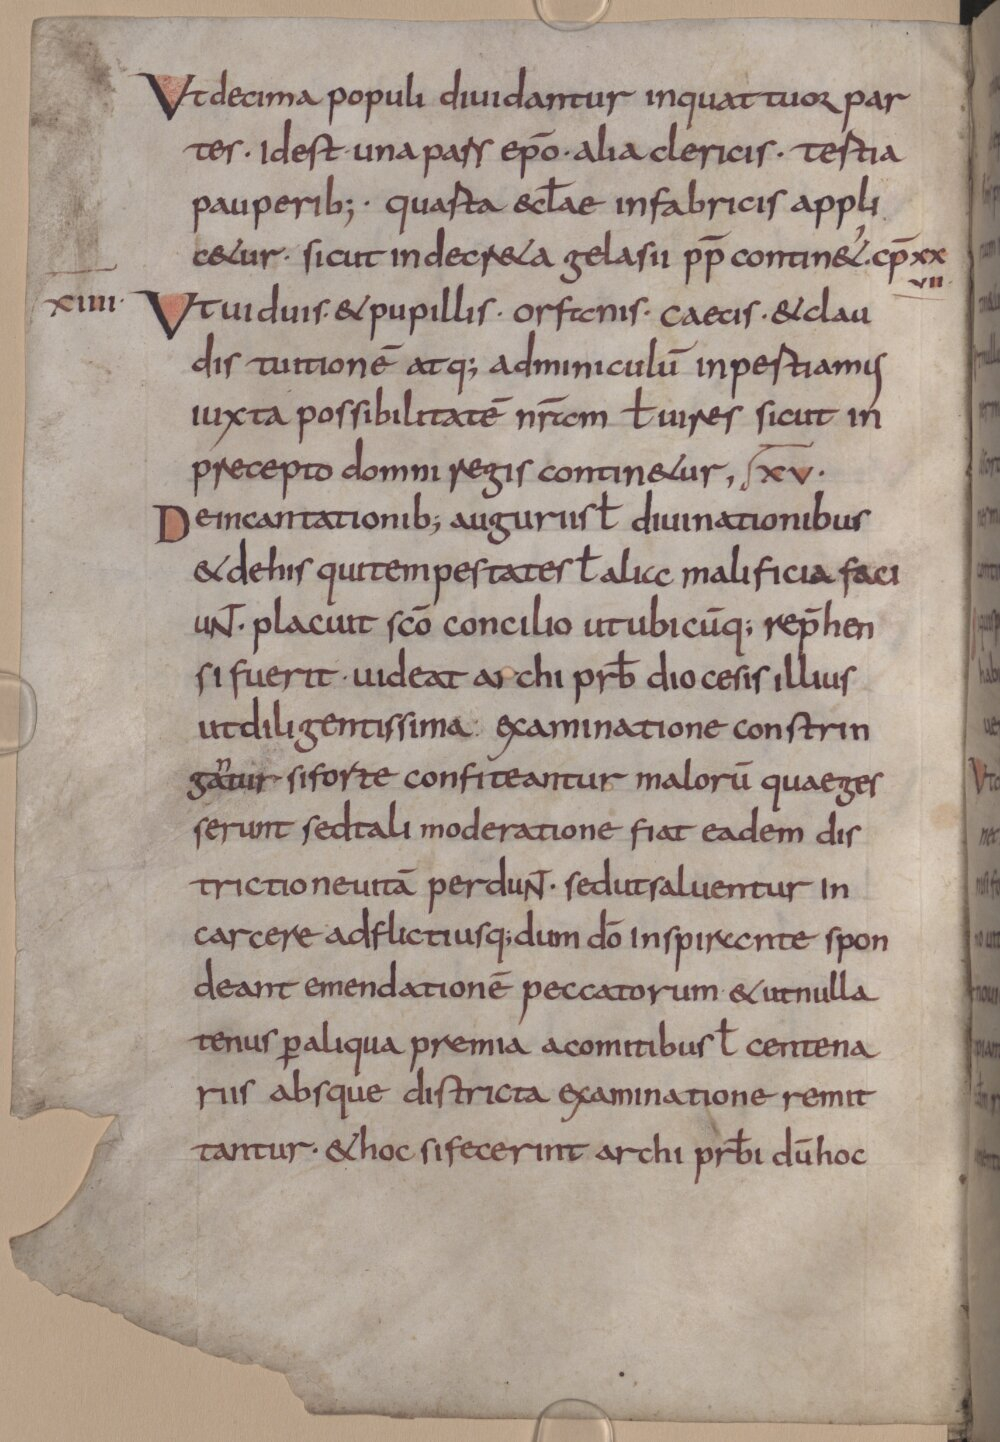 Vt decima populi diuidantur inquattuor par
tes · Idest · una pars ep̄o · alia clericis · tertia
pauperib; · quarta &cl̄ae infabricis appli
c&ur · sicut indecr&a gelasii pp̄ contin&ʼ · cp̄ xx
vii
xiiii · Vt uiduis · & pupillis · orfanis · caecis · & clau
dis tuitionē atq; adminiculū inpertiamus
iuxta possibilitatē nr̄am ł uires sicut in
precepto domni regis contin&ur, xv ·
De incantationib; auguriis ł diuinationibus
& dehis qui tempestates ł alia malificia faci
unt · placuit sc̄o concilio ut ubicūq; rep̄hen
si fuerit · uideat archi prb̄ diocesis illius
ut diligentissima examinatione constrin
gantur · si forte confiteantur malorū quae ges
serunt sed tali moderatione fiat eadem dis
trictio ne uitā perdunt · sed ut saluentur in
carcere adflicti usq; dum dō inspirante spon
deant emendationē peccatorum & ut nulla
tenus ꝑ aliqua premia acomitibus ł centena
riis absque districta examinatione remit
tantur · & hoc si fecerint archi prb̄i dū hoc